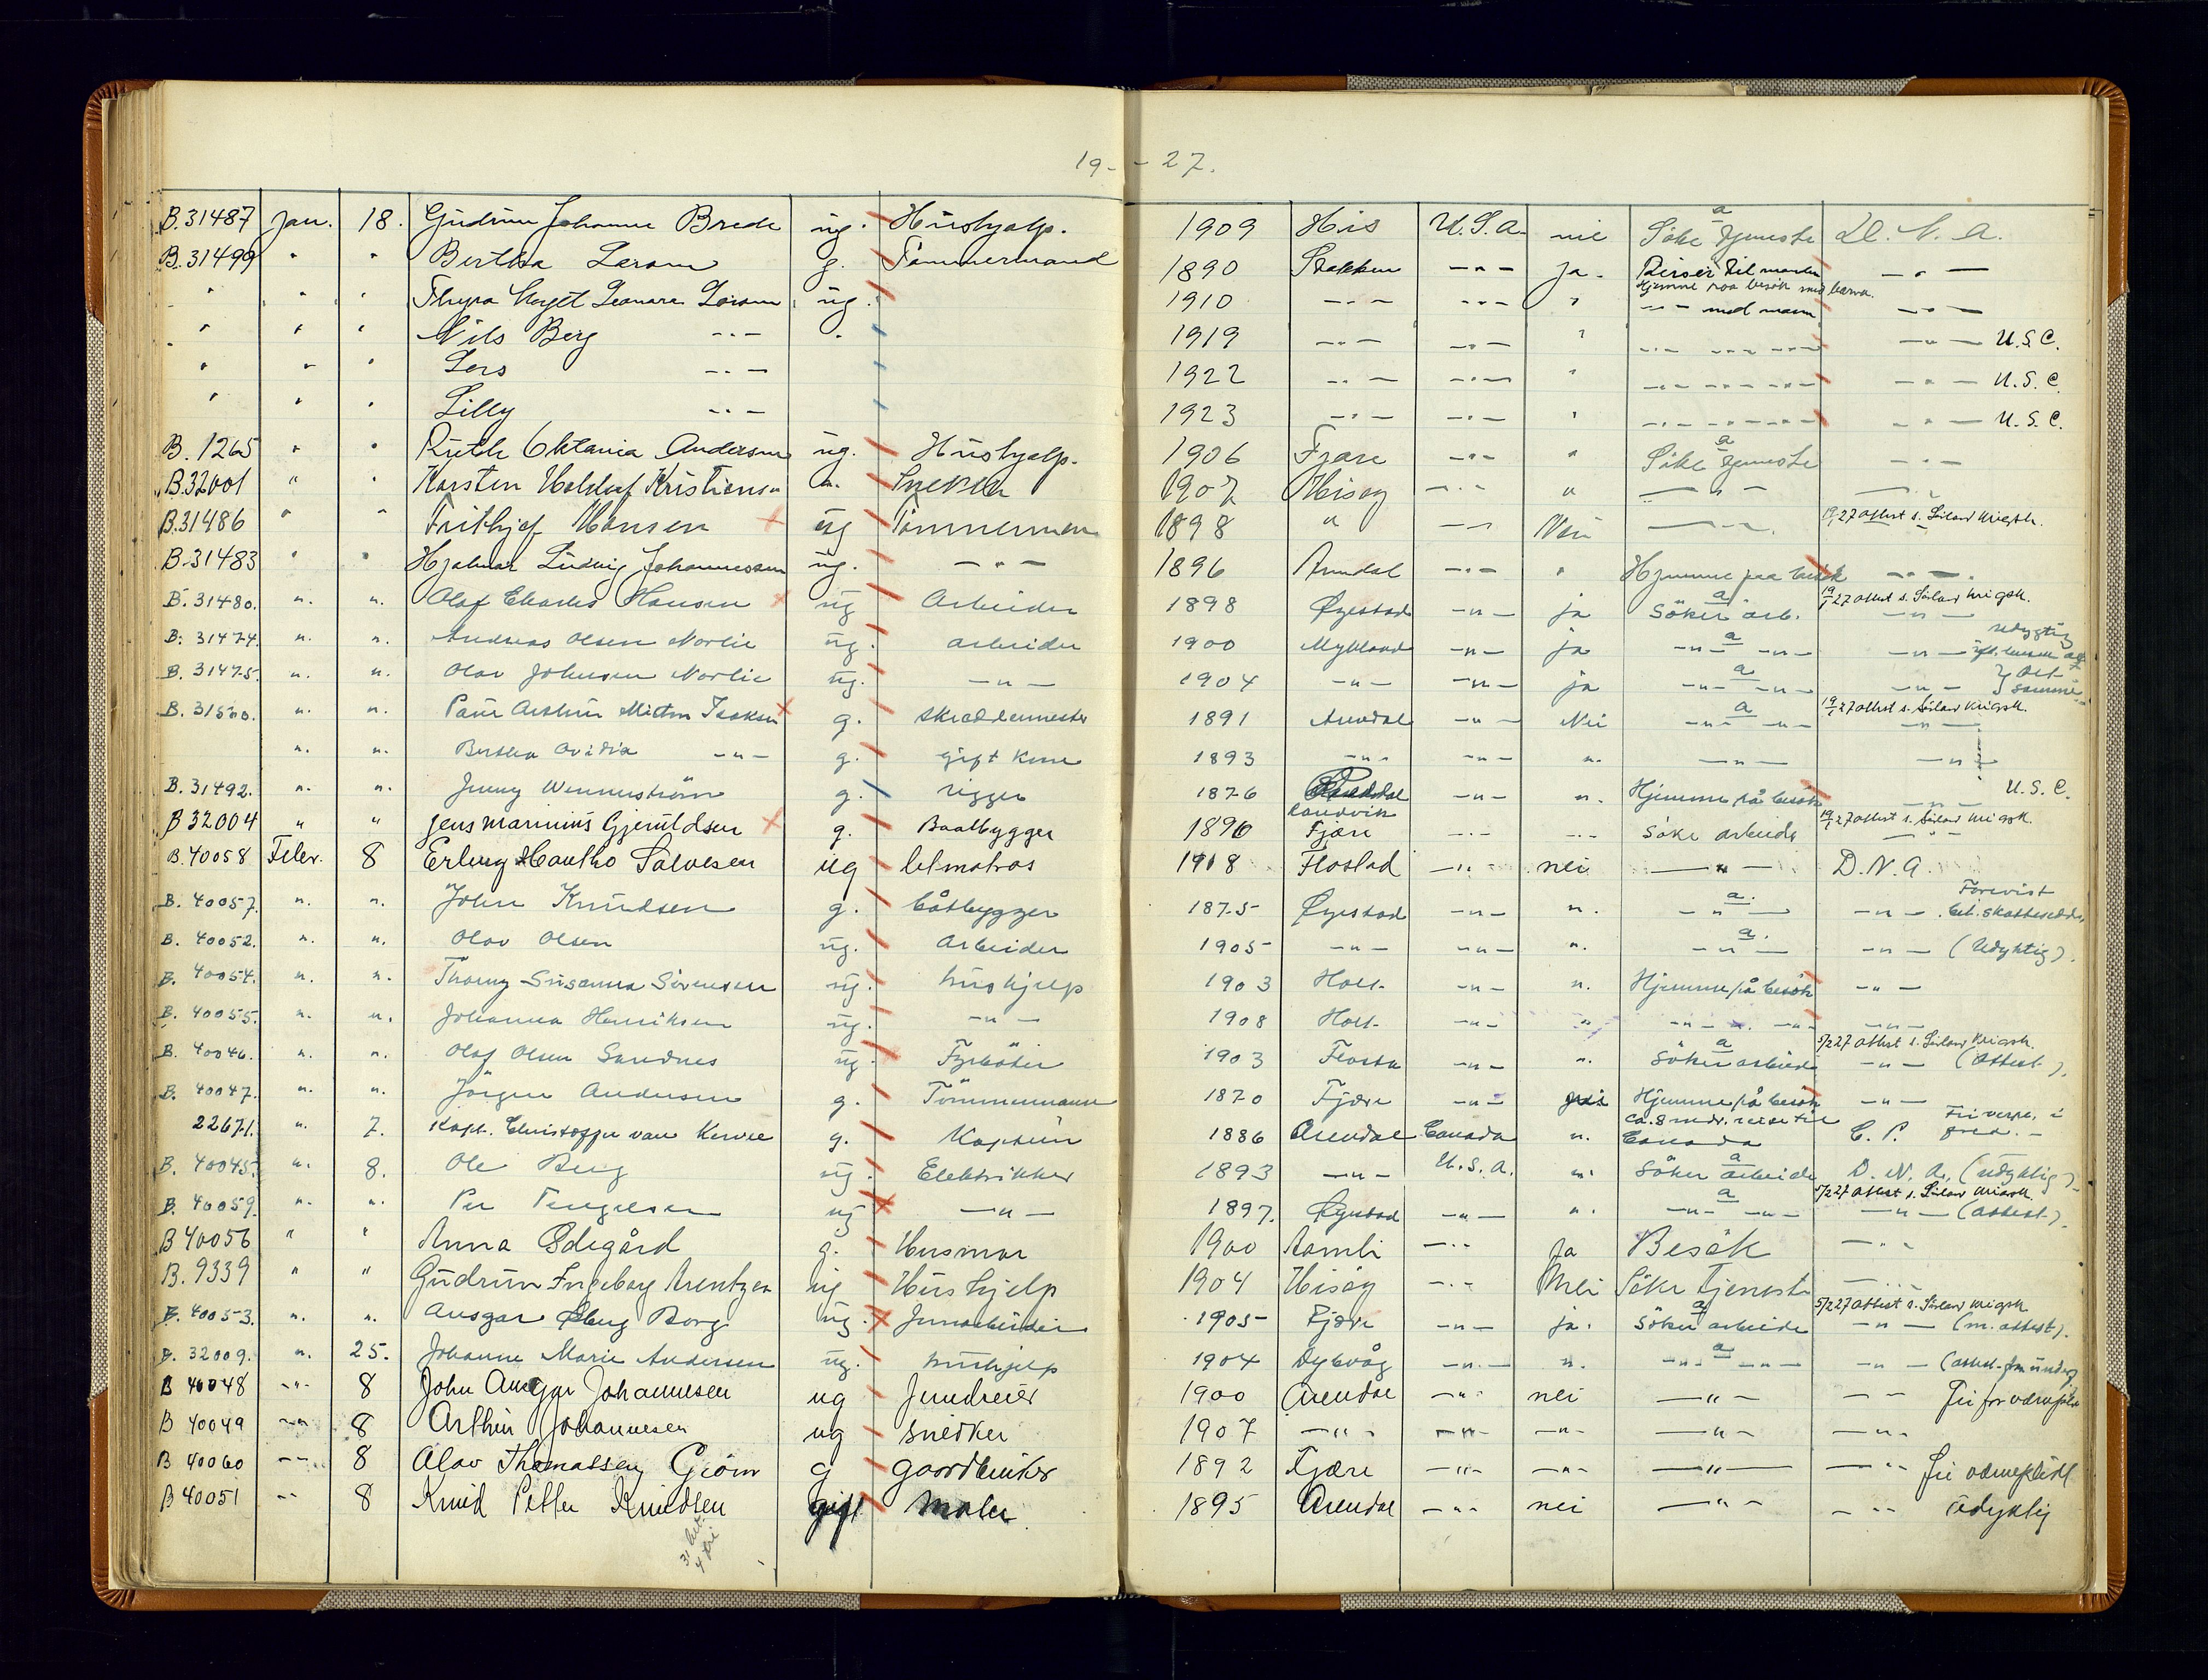 19- - 27.
B.31487 Jan. 18. Gudrun Johanne Brede ug. Hushjelp. 1909 His U.S.A. nei Söke tjeneste a D. N. A.
B.31499 " " Bertha Larsen g. Tømmermand 1890 Stokken -"- ja. Reiser til manden -"-
" " " Thyra Leonora Larsen ug. 1910 -"- -"- " Hjemme paa besøk med barna. -"- med mann -"-
" " " Nils Berg -"- 1919 -"- -"- " -"- -"- -"- -"- U.S.C.
" " " Lers -"- 1922 -"- -"- " -"- -"- -"- -"- U.S.C.
" " " Lilly -"- 1923 -"- -"- " -"- -"- -"- -"- U.S.C.
B. 1265 " " Ruth Oktavia Andersen ug. Hushjelp. 1906 Fjære -"- " Söke tjeneste a -"-
B.32001 " " Karsten Kristiansen u. Snekker 1907 Hisøy -"- " -"- -"-
B.31486 " " Frithjof Hansen ug Tømmermann 1898 " -"- Nei -"- 19/1 27 attest s. Sørland krigsk.
B.31483 " " Hjalmar Ludvig Johannessen ug. -"- 1896 Arendal -"- " Hjemme paa besøk -"-
B. 31480. n. n. Olaf Charles Hansen ug Arbeider 1898 Øyestad -"- ja söker arb. a 19/1 27 attest s. Sørland krigsk. -"-
B. 31474. n. n. Andreas Olsen Norlie ug. arbeider 1900 Mykland -"- ja -"- a -"- -"- udygtig
B. 31475. n. n. Olav Johnsen Norlie ug. -"- 1904 -"- -"- ja -"- a -"- -"- samme
B. 31500. n. n. Paul Arthur Milton Isaksen g. skræddermester 1891 Arendal -"- Nei -"- a -"- 19/1 27 attest s. Sørland krigsk. -"-
n. n. Bertha Ovidia -"- g. gift kone 1893 -"- -"- n. -"- -"-
B. 31492. n. n. Jenny Wennerström g. rigger 1876 Landvik -"- n. Hjemme på besök -"- U.S.C.
B 32004 " " Jens Marinius Gjeruldsen g. Baatbygger 1896 Fjære -"- -"- söke arbeide 19/1 27 attest s. Sørland krigsk. -"-
B. 40058 Febr. 8 Erling Hartho Salvesen ug letmatros 1908 Flostad -"- nei -"- D.N.A.
B. 40057. n. n. John Knudsen g. båtbygger 1875 Øyestad -"- n. -"- a. -"- Forevist bet. skatteseddel
B. 40052. n. n. Olav Olsen ug. Arbeider 1905 -"- -"- n. -"- a. -"- (Udyktig).
B. 40054. n. n. Thorny Susanna Sörensen ug. hushjelp 1903 Holt- -"- n. Hjemme på besök -"-
B. 40055. n. n. Johanna Henriksen ug. -"- 1908 Holt- -"- n. -"- -"- -"-
B. 40046. n. n. Olaf Olsen Sandnes ug. Fyrböter 1903 Flosta -"- n. söker arbeide a 5/2 27 attest s. Sørland krigsk. -"- (attest).
B. 40047. n. n. Jörgen Andersen g. Tömmermann 1870 Fjære -"- Hjemme på besök -"-
22671. n. 7. Kapt. Christoffer van Kervel g. Kaptein 1886 Arendal Canada n. ca. 8 mdr. reise til Canada C. P. Fri verpl. i fred. -
B. 40045. n. 8. Ole Berg ug. Elektrikker 1893 -"- U.S.A. n. söker arbeide a D. N. A. (udyktig)
B. 40059. n. n. Per Tengelsen ug -"- 1897. Øyestad -"- n. -"- a -"- 5/2 27 attest s. Sørland krigsk. -"- (attest).
B 40056 " " Anna Ødegård g. Husmor 1900 Aamli -"- ja Besøk -"-
B. 9339 " " Gudrun Ingeborg Arentzen ug Hushjelp 1904 Hisøy -"- Nei Søke tjeneste -"-
B. 40053. n. n. Ansgar Borg ug. Jernarbeider 1905 Fjære -"- ja. söker arbeide a 5/2 27 attest s. Sørland krigsk. -"- (m. attest).
B. 32009. n. 25. Johanne Marie Andersen ug. hushjelp 1904 Dybvåg -"- n. -"- a -"- -"-
B 40048 -"- 8 John Ansgar Johannesen ug Jerndreier 1900 Arendal -"- nei -"- -"- Fri for vernepl.
B 40049 -"- 8 Arthur Johannesen ug snedker 1907 -"- -"- -"- -"- -"-
B 40060 -"- 8 Olav Thomassen Gjöm g gaardbruker 1892 Fjære -"- -"- -"- -"- fri verneplikt
B 40051 -"- 8 Knud Petter Knudsen gift maler 1895 Arendal -"- nei -"- -"- udyktig